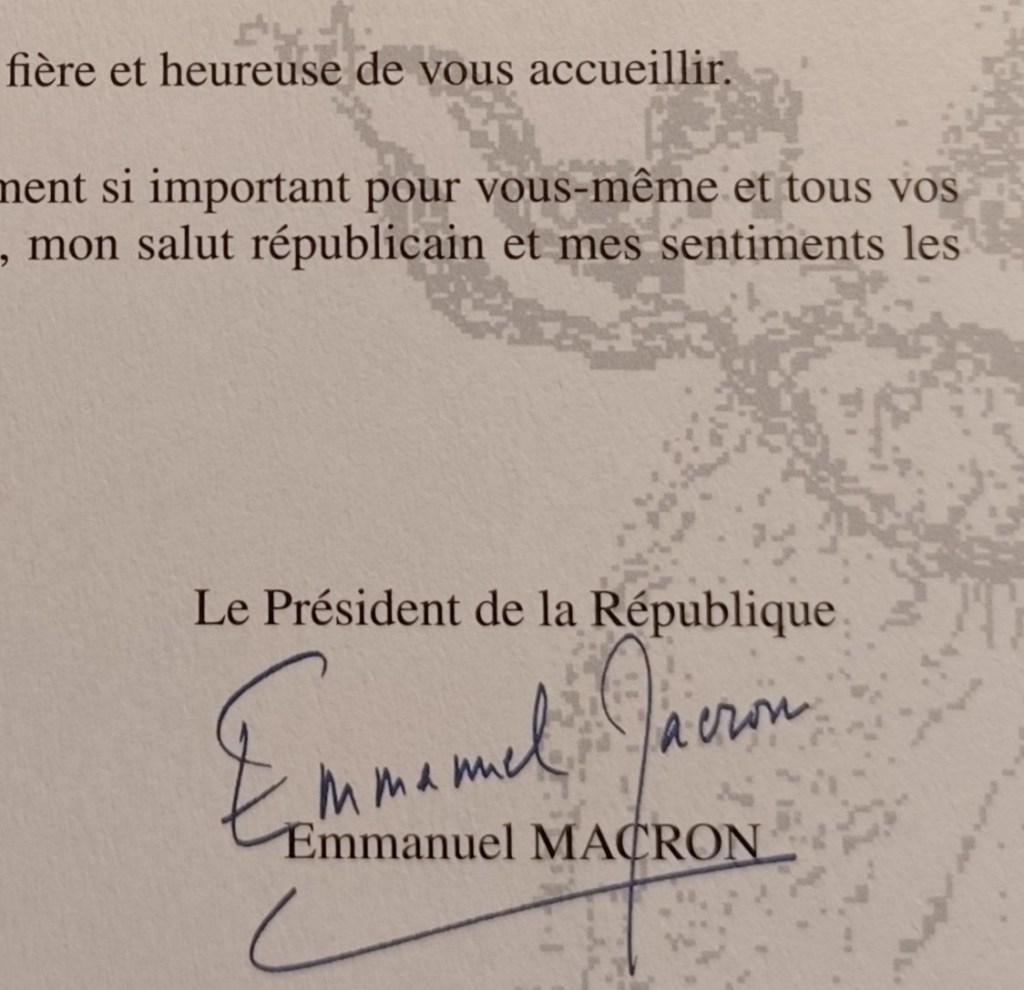 fière et heureuse de vous accueillir.
ment si important pour vous-même et tous vos
, mon salut républicain et mes sentiments les
Le Président de la République
Emmanuel Macron
Emmanuel MACRON